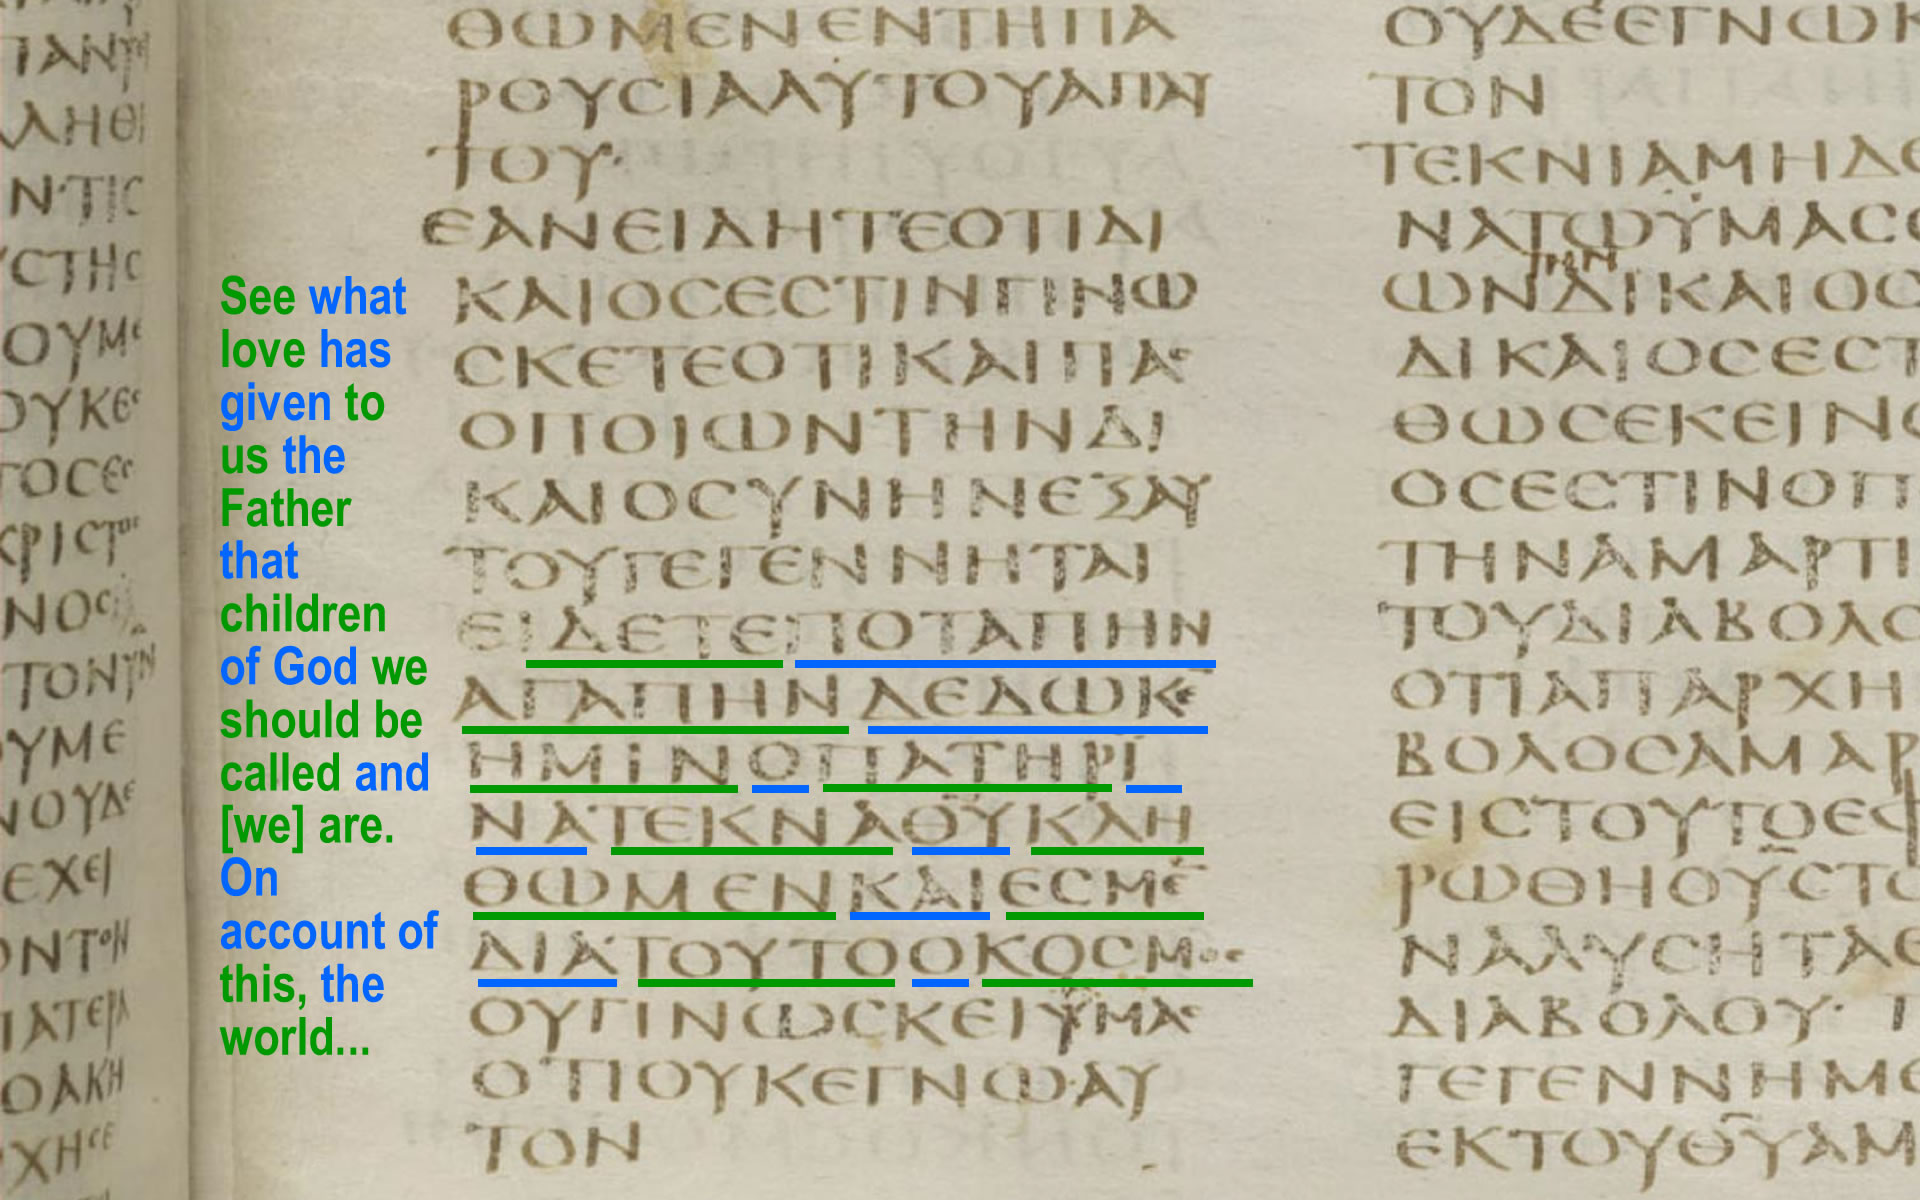 See what
love has
given to
us the
Father
that
children
of God we
should be
called and
[we] are.
On
account of
this, the
world...
ΘΩΜΕΝΕΝΤΗΠΑ
ΡΟΥϹΙΑΑΥΤΟΥΑΠΑΥ
ΤΟΥ·
ΕΑΝΕΙΔΗΤΕΟΤΙΔΙ
ΚΑΙΟϹΕϹΤΙΝΓΙΝΩ
ϹΚΕΤΕΟΤΙΚΑΙΠΑϹ
ΟΠΟΙΩΝΤΗΝΔΙ
ΚΑΙΟϹΥΝΗΝΕΞΑΥ
ΤΟΥΓΕΓΕΝΝΗΤΑΙ
ΕΙΔΕΤΕΠΟΤΑΠΗΝ
ΑΓΑΠΗΝΔΕΔΩΚΕ
ΗΜΙΝΟΠΑΤΗΡΙ
ΝΑΤΕΚΝΑΘΥΚΛΗ
ΘΩΜΕΝΚΑΙΕϹΜΕ
ΔΙΑΤΟΥΤΟΟΚΟϹΜΟϹ
ΟΥΓΙΝΩϹΚΕΙΥΜΑϹ
ΟΤΙΟΥΚΕΓΝΩΑΥ
ΤΟΝ
ΟΥΔΕΕΓΝΩΚ
ΤΟΝ
ΤΕΚΝΙΑΜΗΔΕ
ΝΑΤΩΥΜΑϹ
ΩΝΔΙΚΑΙΟϹ
ΔΙΚΑΙΟϹΕϹΤ
ΘΩϹΕΚΕΙΝΟ
ΟϹΕϹΤΙΝΟΠ
ΤΗΝΑΜΑΡΤΙ
ΤΟΥΔΙΑΒΟΛΟ
ΟΤΙΑΠΑΡΧΗ
ΒΟΛΟϹΑΜΑΡ
ΕΙϹΤΟΥΤΟΕΦ
ΡΩΘΗΟΥϹΤΟ
ΝΑΛΥϹΗΤΑΕ
ΔΙΑΒΟΛΟΥ·
ΓΕΓΕΝΝΗΜΕ
ΕΚΤΟΥΘΥΑΜ